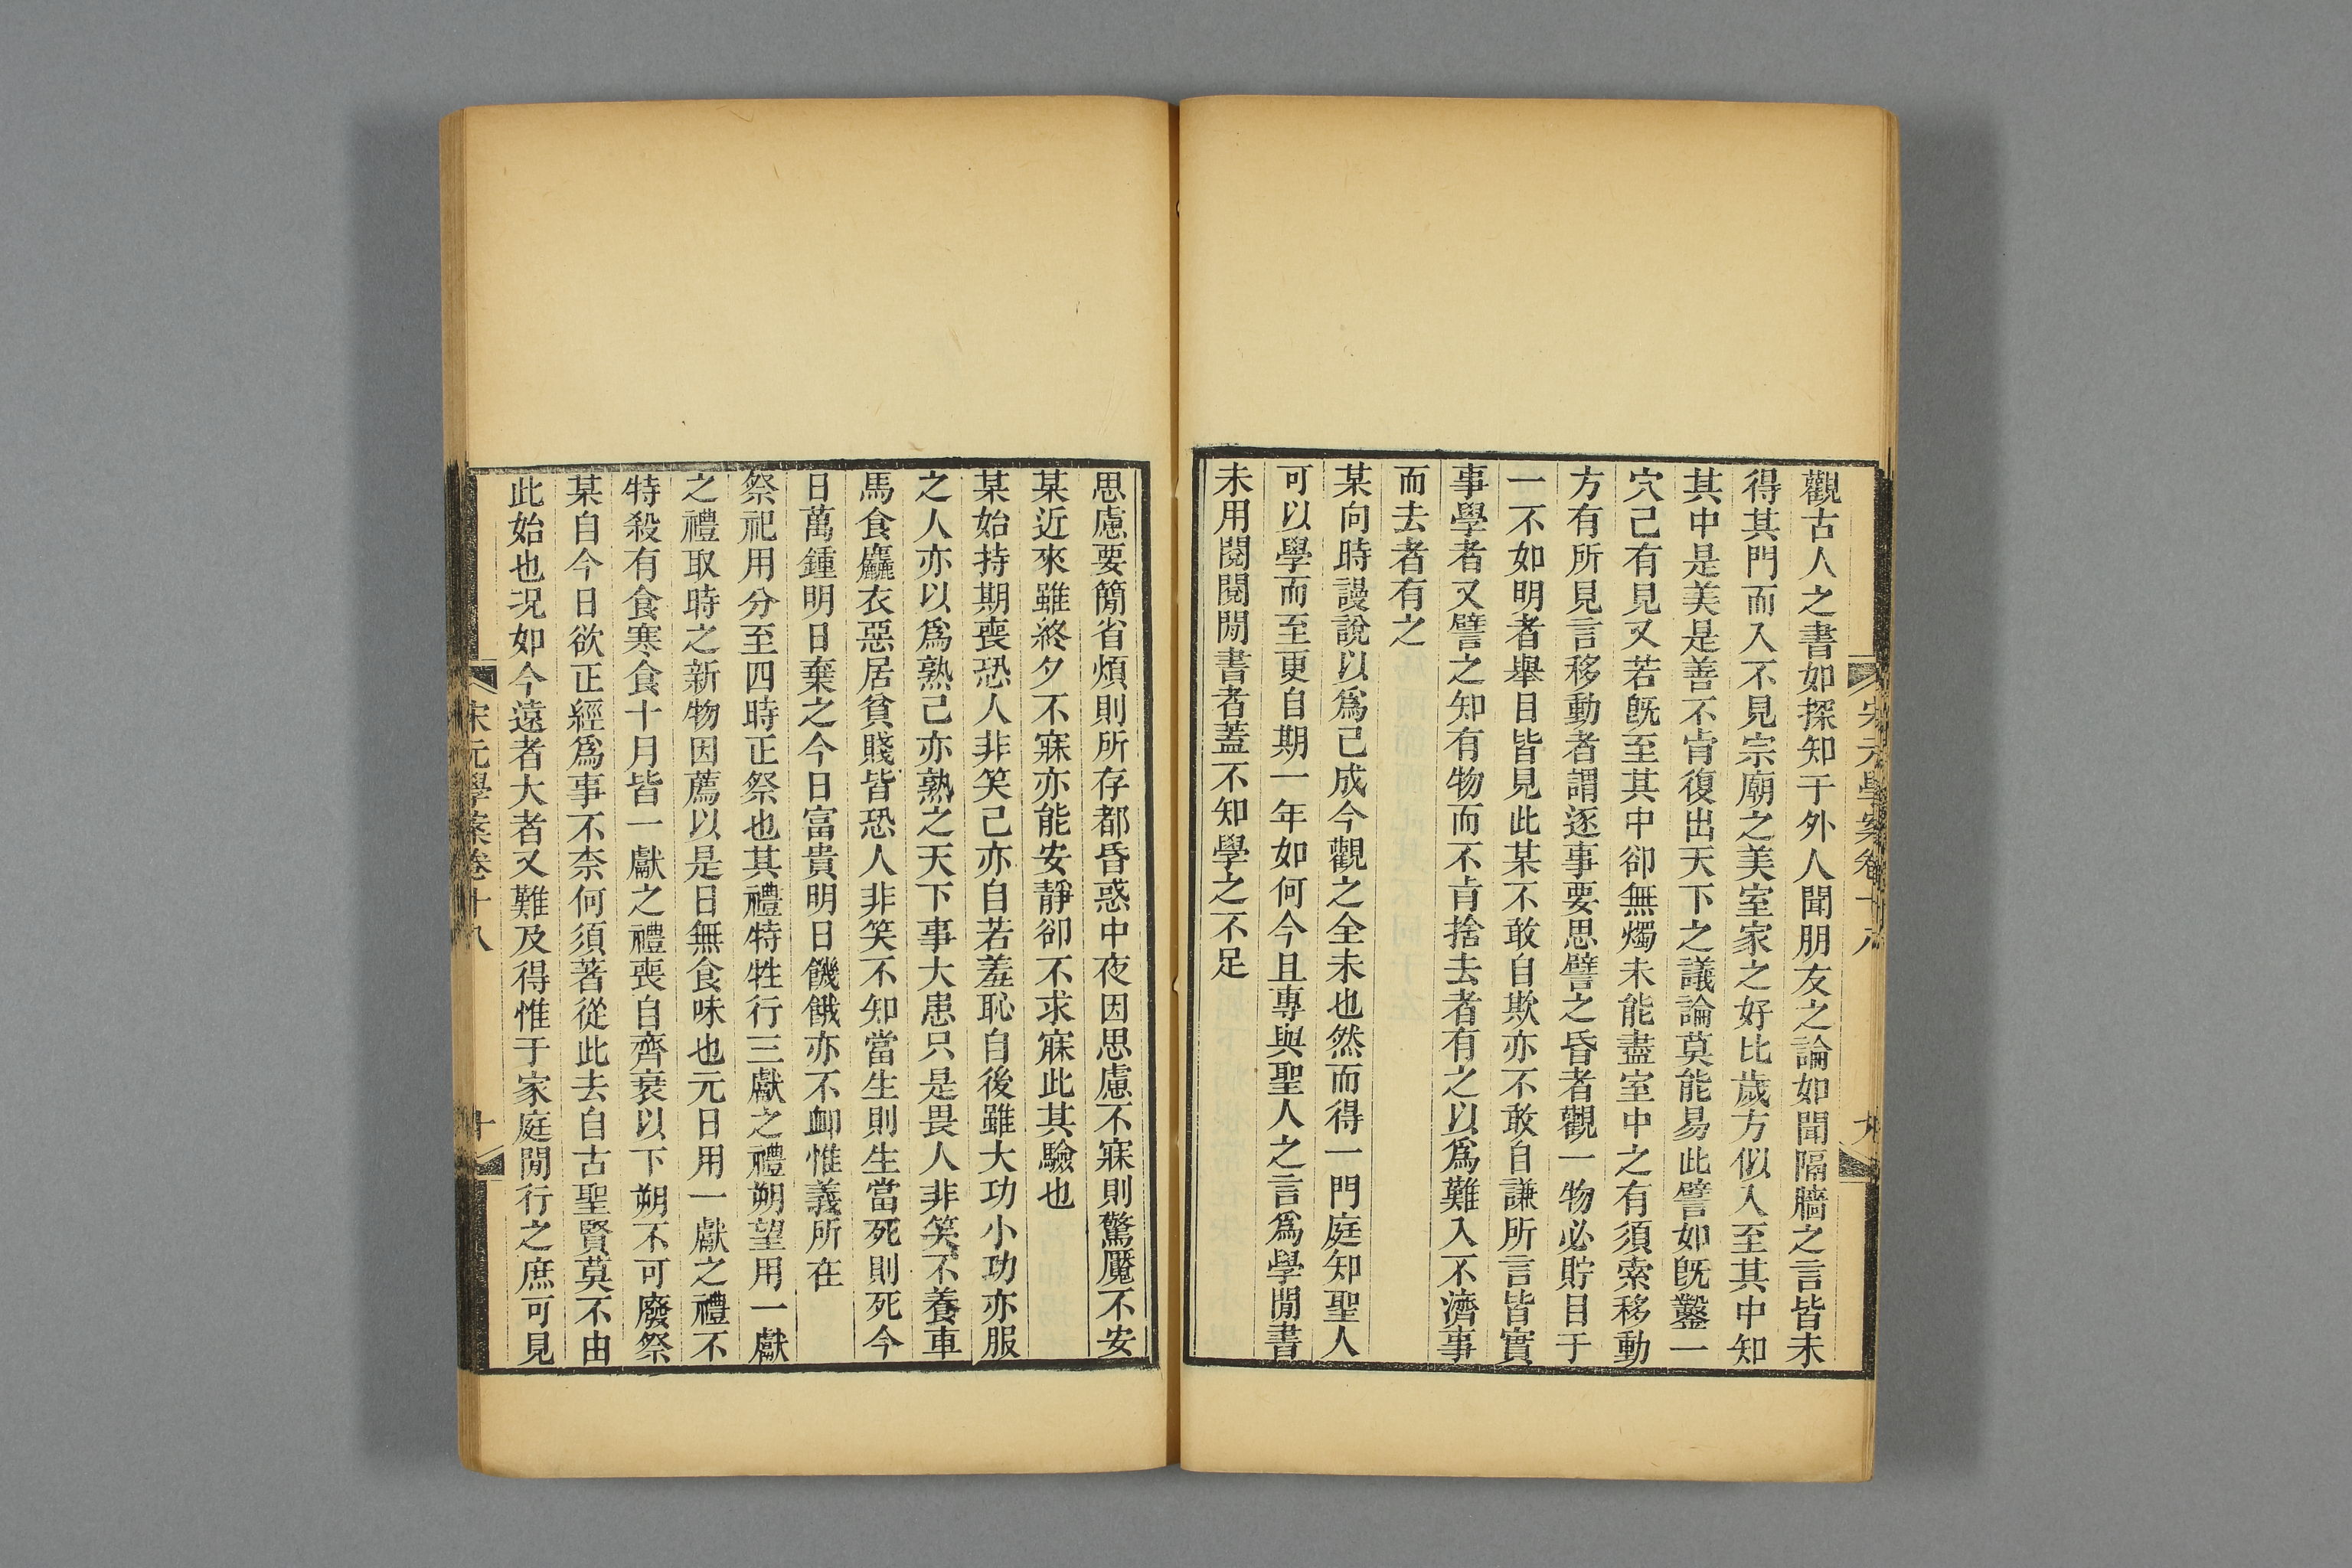 宋元學案卷十八
九
觀古人之書如探知于外人聞朋友之論如聞隔牆之言皆未
得其門而入不見宗廟之美室家之好比歲方似入至其中知
其中是美是善不肯復出天下之議論莫能易此譬如旣鑿一
穴己有見又若旣至其中卻無燭未能盡室中之有須索移動
方有所見言移動者謂逐事要思譬之昏者觀一物必貯目于
一不如明者舉目皆見此某不敢自欺亦不敢自謙所言皆實
事學者又譬之知有物而不肯捨去者有之以爲難入不濟事
而去者有之
某向時謾說以爲己成今觀之全未也然而得一門庭知聖人
可以學而至更自期一年如何今且專與聖人之言爲學閒書
未用閱閱閒書者蓋不知學之不足
思慮要簡省煩則所存都昏惑中夜因思慮不寐則驚魘不安
某近來雖終夕不寐亦能安靜卻不求寐此其驗也
某始持期喪恐人非笑己亦自若羞恥自後雖大功小功亦服
之人亦以爲熟己亦熟之天下事大患只是畏人非笑不養車
馬食麤衣惡居貧賤皆恐人非笑不知當生則生當死則死今
日萬鍾明日棄之今日富貴明日饑餓亦不卹惟義所在
祭祀用分至四時正祭也其禮特牲行三獻之禮朔望用一獻
之禮取時之新物因薦以是日無食味也元日用一獻之禮不
特殺有食寒食十月皆一獻之禮喪自齊衰以下朔不可廢祭
某自今日欲正經爲事不柰何須著從此去自古聖賢莫不由
此始也况如今遠者大者又難及得惟于家庭閒行之庶可見
宋元學案卷十八
十